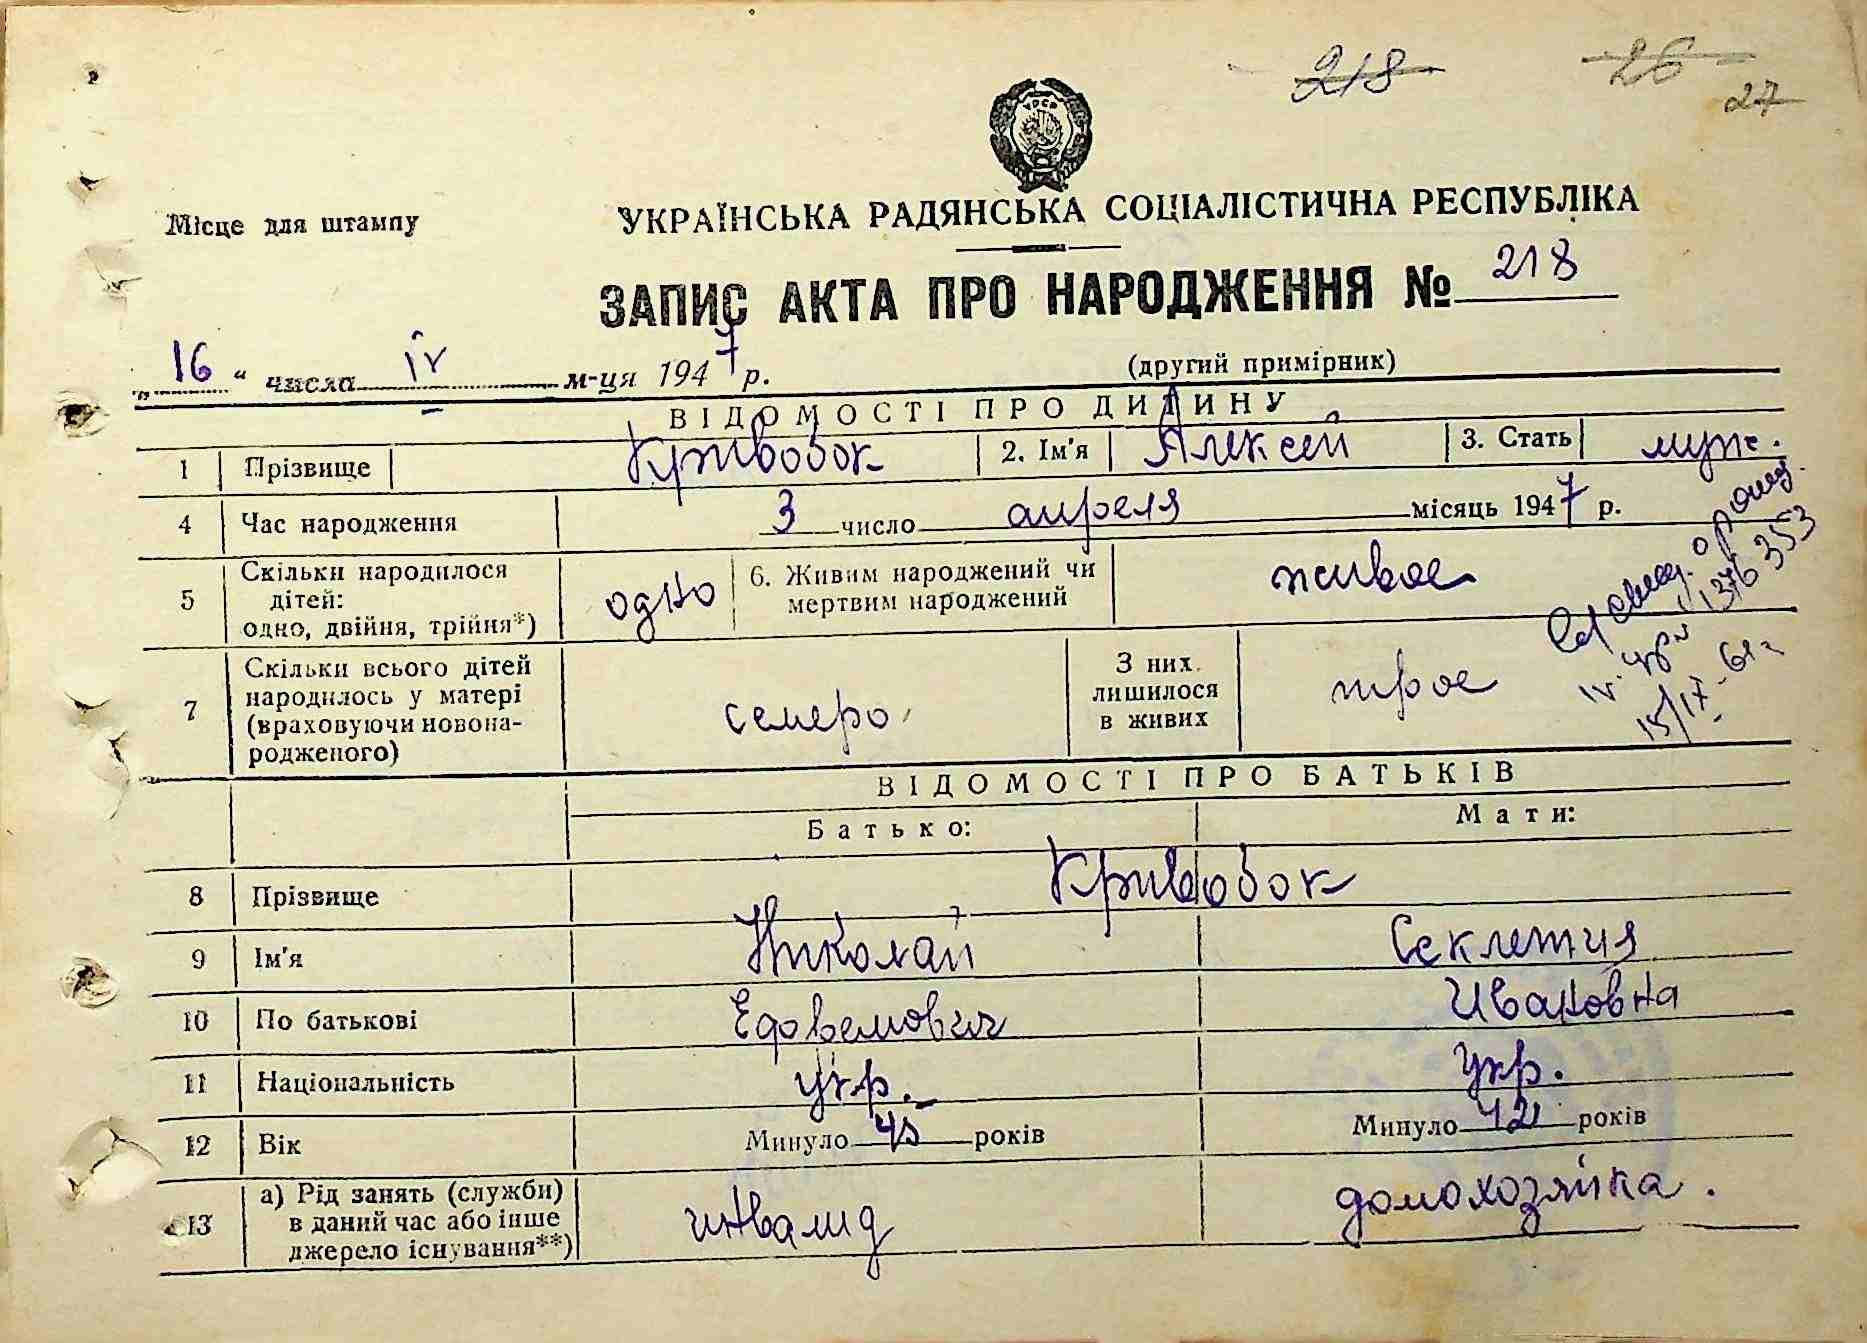 218 26
27
УРСР
Місце для штампу
УКРАЇНСЬКА РАДЯНСЬКА СОЦІАЛІСТИЧНА РЕСПУБЛІКА
ЗАПИС АКТА ПРО НАРОДЖЕННЯ № 218
„16“ числа IV м-ця 1947 р.
(другий примірник)
ВІДОМОСТІ ПРО ДИТИНУ
1 Прізвище Кривобок 2. Ім'я Алексей 3. Стать муж.
4 Час народження 3 число апреля місяць 1947 р.
5 Скільки народилося
дітей:
одно, двійня, трійня*) одно 6. Живим народжений чи
мертвим народжений живое
7 Скільки всього дітей
народилось у матері
(враховуючи новона-
родженого) семеро З них
лишилося
в живих трое
о
376353
15/IX-61г
ВІДОМОСТІ ПРО БАТЬКІВ
Батько: Мати:
8 Прізвище Кривобок
9 Ім'я Николай Секлетия
10 По батькові Ивановна
11 Національність укр. укр.
12 Вік Минуло 45 років Минуло 42 років
13 а) Рід занять (служби)
в даний час або інше
джерело існування**) инвалид домохозяйка.